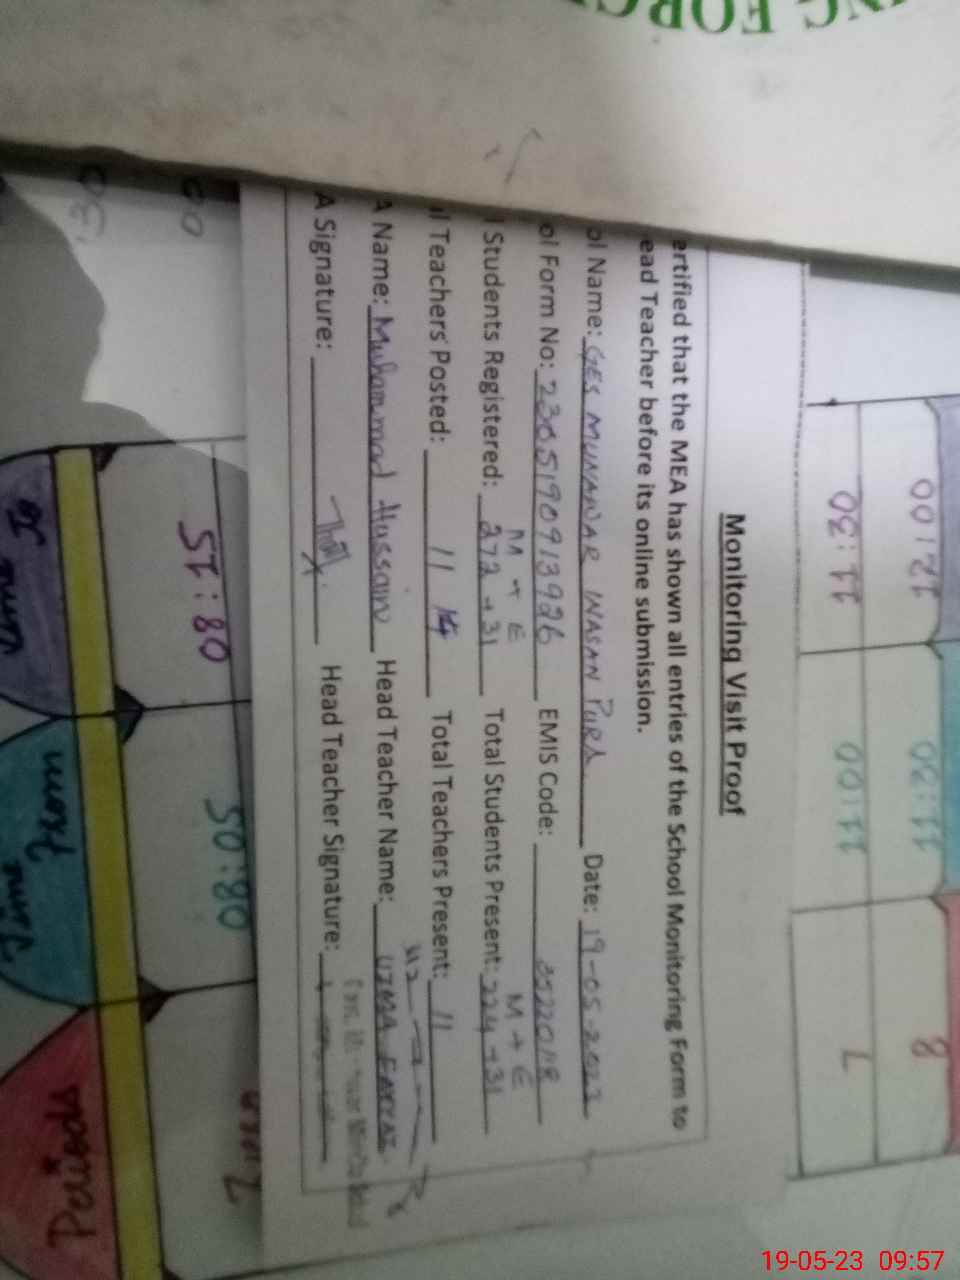 Monitoring Visit Proof
ertified that the MEA has shown all entries of the School Monitoring Form to
ead Teacher before its online submission.
ol Name: GES MUNAWAR WASAN PURA Date: 19-05-2023
ol Form No: 2305190913926 EMIS Code: 35220118
M + E M + E
l Students Registered: 272 + 31 Total Students Present: 224 + 31
al Teachers Posted: 11 Total Teachers Present: 11
A Name: Muhammad Hussain Head Teacher Name: UZMA
A Signature: Head Teacher Signature:
12:00 11:30 8
11:30 11:00 7
08:15 08:05
NG FORC
19-05-23 09:57